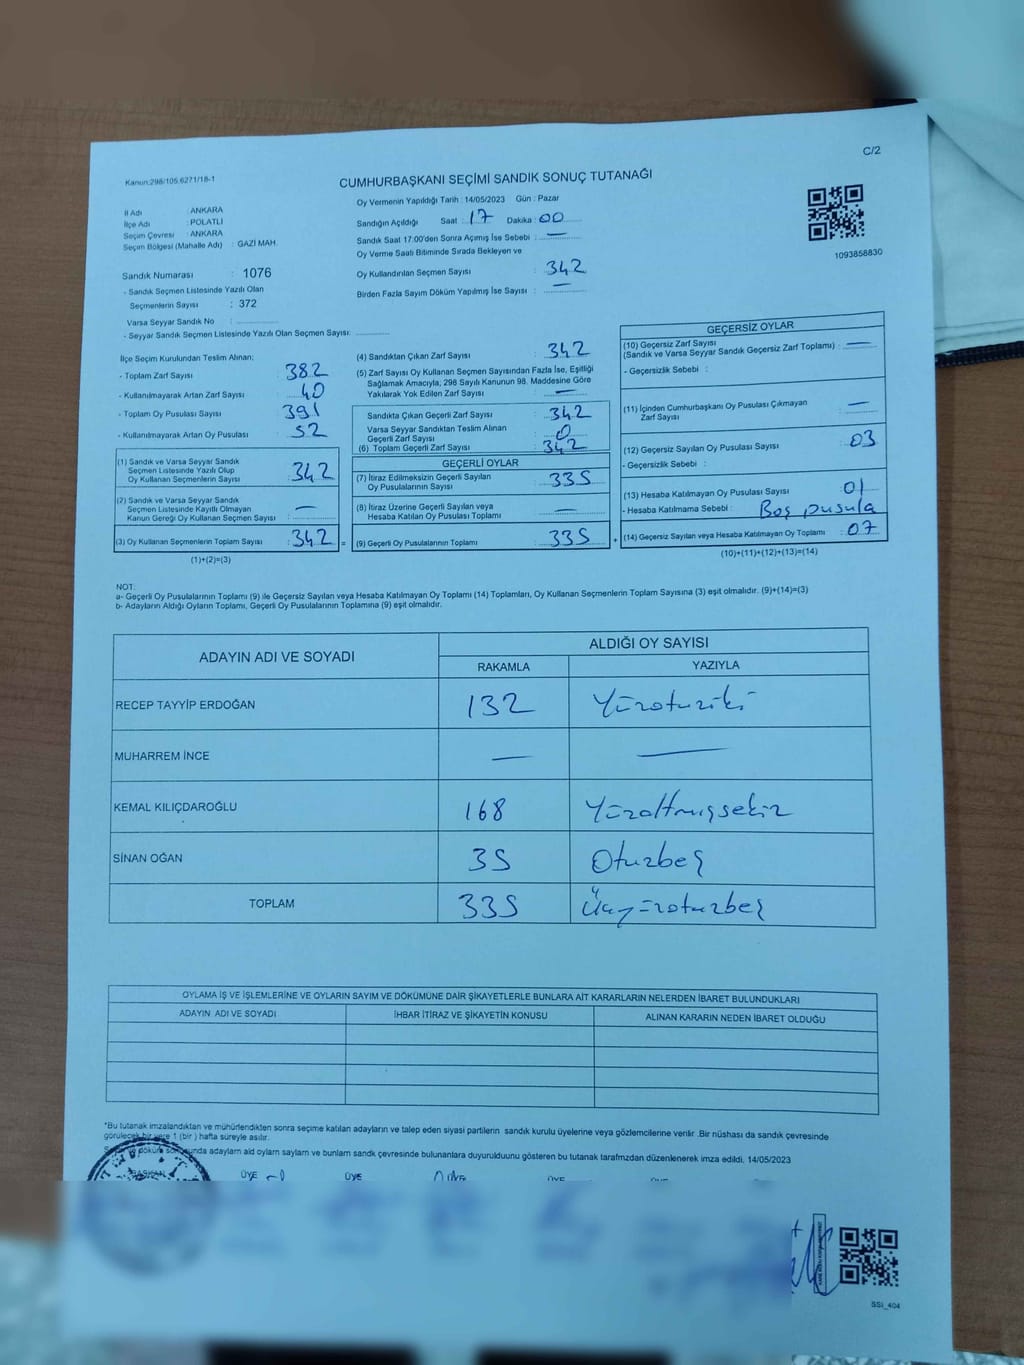 C/2
Kanun:298/105,6271/18-1
CUMHURBAŞKANI SEÇİMİ SANDIK SONUÇ TUTANAĞI
Oy Vermenin Yapıldığı Tarih : 14/05/2023 Gün : Pazar
İl Adı : ANKARA
İlçe Adı : POLATLI
Seçim Çevresi : ANKARA
Seçim Bölgesi (Mahalle Adı) : GAZİ MAH.
Sandığın Açıldığı Saat : 17 Dakika : 00
Sandık Saat 17:00'den Sonra Açımış İse Sebebi : —
Oy Verme Saati Bitiminde Sırada Bekleyen ve
Oy Kullandırılan Seçmen Sayısı : 342
Birden Fazla Sayım Döküm Yapılmış İse Sayısı : —
1093858830
Sandık Numarası : 1076
- Sandık Seçmen Listesinde Yazılı Olan
Seçmenlerin Sayısı : 372
Varsa Seyyar Sandık No :
- Seyyar Sandık Seçmen Listesinde Yazılı Olan Seçmen Sayısı:
İlçe Seçim Kurulundan Teslim Alınan;
- Toplam Zarf Sayısı : 382
- Kullanılmayarak Artan Zarf Sayısı : 40
- Toplam Oy Pusulası Sayısı : 391
- Kullanılmayarak Artan Oy Pusulası : 52
(1) Sandık ve Varsa Seyyar Sandık
Seçmen Listesinde Yazılı Olup
Oy Kullanan Seçmenlerin Sayısı : 342
(2) Sandık ve Varsa Seyyar Sandık
Seçmen Listesinde Kayıtlı Olmayan
Kanun Gereği Oy Kullanan Seçmen Sayısı : —
(3) Oy Kullanan Seçmenlerin Toplam Sayısı : 342 =
(1)+(2)=(3)
(4) Sandıktan Çıkan Zarf Sayısı : 342
(5) Zarf Sayısı Oy Kullanan Seçmen Sayısından Fazla İse, Eşitliği
Sağlamak Amacıyla; 298 Sayılı Kanunun 98. Maddesine Göre
Yakılarak Yok Edilen Zarf Sayısı : —
Sandıkta Çıkan Geçerli Zarf Sayısı : 342
Varsa Seyyar Sandıktan Teslim Alınan
Geçerli Zarf Sayısı : 0
(6) Toplam Geçerli Zarf Sayısı : 342
GEÇERLİ OYLAR
(7) İtiraz Edilmeksizin Geçerli Sayılan
Oy Pusulalarının Sayısı : 335
(8) İtiraz Üzerine Geçerli Sayılan veya
Hesaba Katılan Oy Pusulası Toplamı : —
(9) Geçerli Oy Pusulalarının Toplamı : 335 +
GEÇERSİZ OYLAR
(10) Geçersiz Zarf Sayısı : —
(Sandık ve Varsa Seyyar Sandık Geçersiz Zarf Toplamı)
- Geçersizlik Sebebi :
(11) İçinden Cumhurbaşkanı Oy Pusulası Çıkmayan
Zarf Sayısı : —
(12) Geçersiz Sayılan Oy Pusulası Sayısı : 03
- Geçersizlik Sebebi :
(13) Hesaba Katılmayan Oy Pusulası Sayısı : 01
- Hesaba Katılmama Sebebi : Boş pusula
(14) Geçersiz Sayılan veya Hesaba Katılmayan Oy Toplamı : 07
(10)+(11)+(12)+(13)=(14)
NOT:
a- Geçerli Oy Pusulalarının Toplamı (9) ile Geçersiz Sayılan veya Hesaba Katılmayan Oy Toplamı (14) Toplamları, Oy Kullanan Seçmenlerin Toplam Sayısına (3) eşit olmalıdır. (9)+(14)=(3)
b- Adayların Aldığı Oyların Toplamı, Geçerli Oy Pusulalarının Toplamına (9) eşit olmalıdır.
ADAYIN ADI VE SOYADI ALDIĞI OY SAYISI
RAKAMLA YAZIYLA
RECEP TAYYİP ERDOĞAN 132 Yüzotuziki
MUHARREM İNCE — —
KEMAL KILIÇDAROĞLU 168 Yüzaltmışsekiz
SİNAN OĞAN 35 Otuzbeş
TOPLAM 335 Üçyüzotuzbeş
OYLAMA İŞ VE İŞLEMLERİNE VE OYLARIN SAYIM VE DÖKÜMÜNE DAİR ŞİKAYETLERLE BUNLARA AİT KARARLARIN NELERDEN İBARET BULUNDUKLARI
ADAYIN ADI VE SOYADI İHBAR İTİRAZ VE ŞİKAYETİN KONUSU ALINAN KARARIN NEDEN İBARET OLDUĞU
*Bu tutanak imzalandıktan ve mühürlendikten sonra seçime katılan adayların ve talep eden siyasi partilerin sandık kurulu üyelerine veya gözlemcilerine verilir .Bir nüshası da sandık çevresinde
görülecek bir yere 1 (bir ) hafta süreyle asılır.
adayların aldı oyların sayların ve bunlam sandk çevresinde bulunanlara duyurulduunu gösteren bu tutanak tarafmzdan düzenlenerek imza edildi. 14/05/2023
BAŞKAN ÜYE ÜYE ÜYE
SSI_404